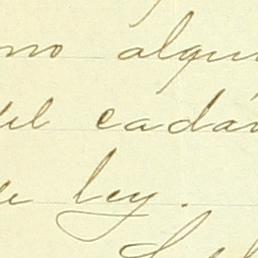 no algu
del cadá
de ley.